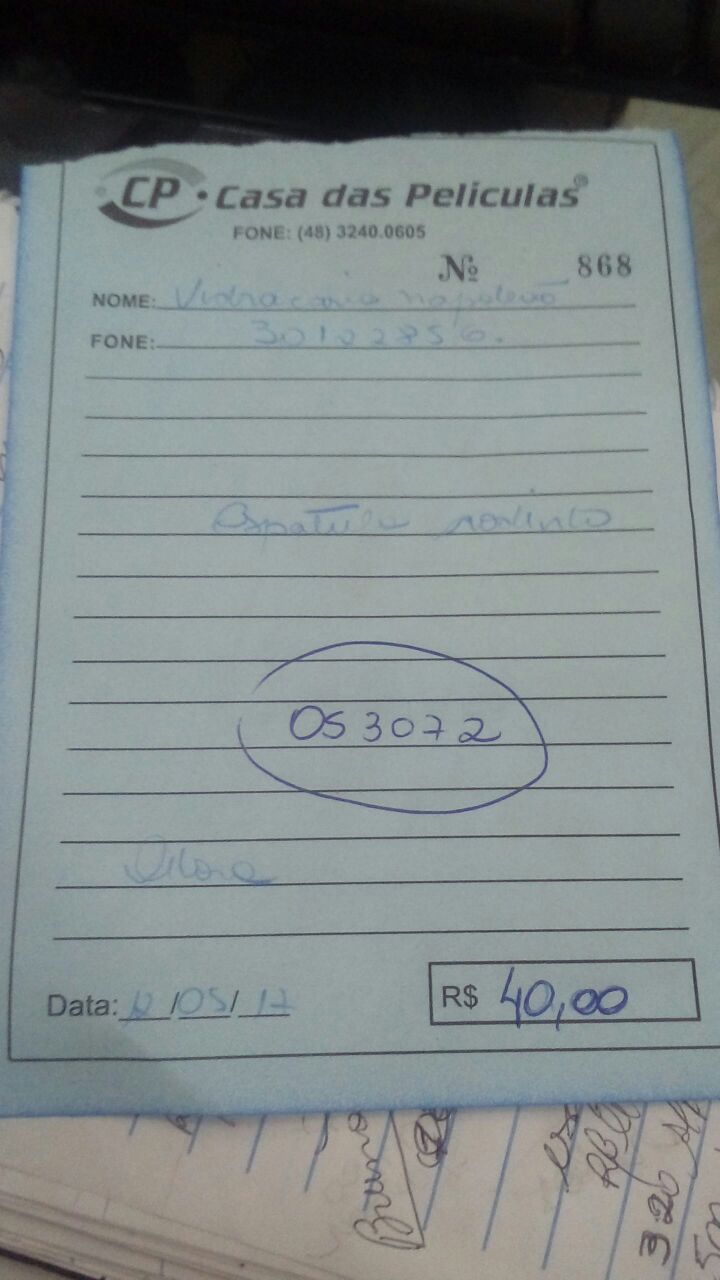 CP · Casa das Películas®
FONE: (48) 3240.0605
Nº 868
NOME: Vidracaria napoleão
FONE: 30102856.
Espatula
OS 3072
Data: /05/17
R$ 40,00
320